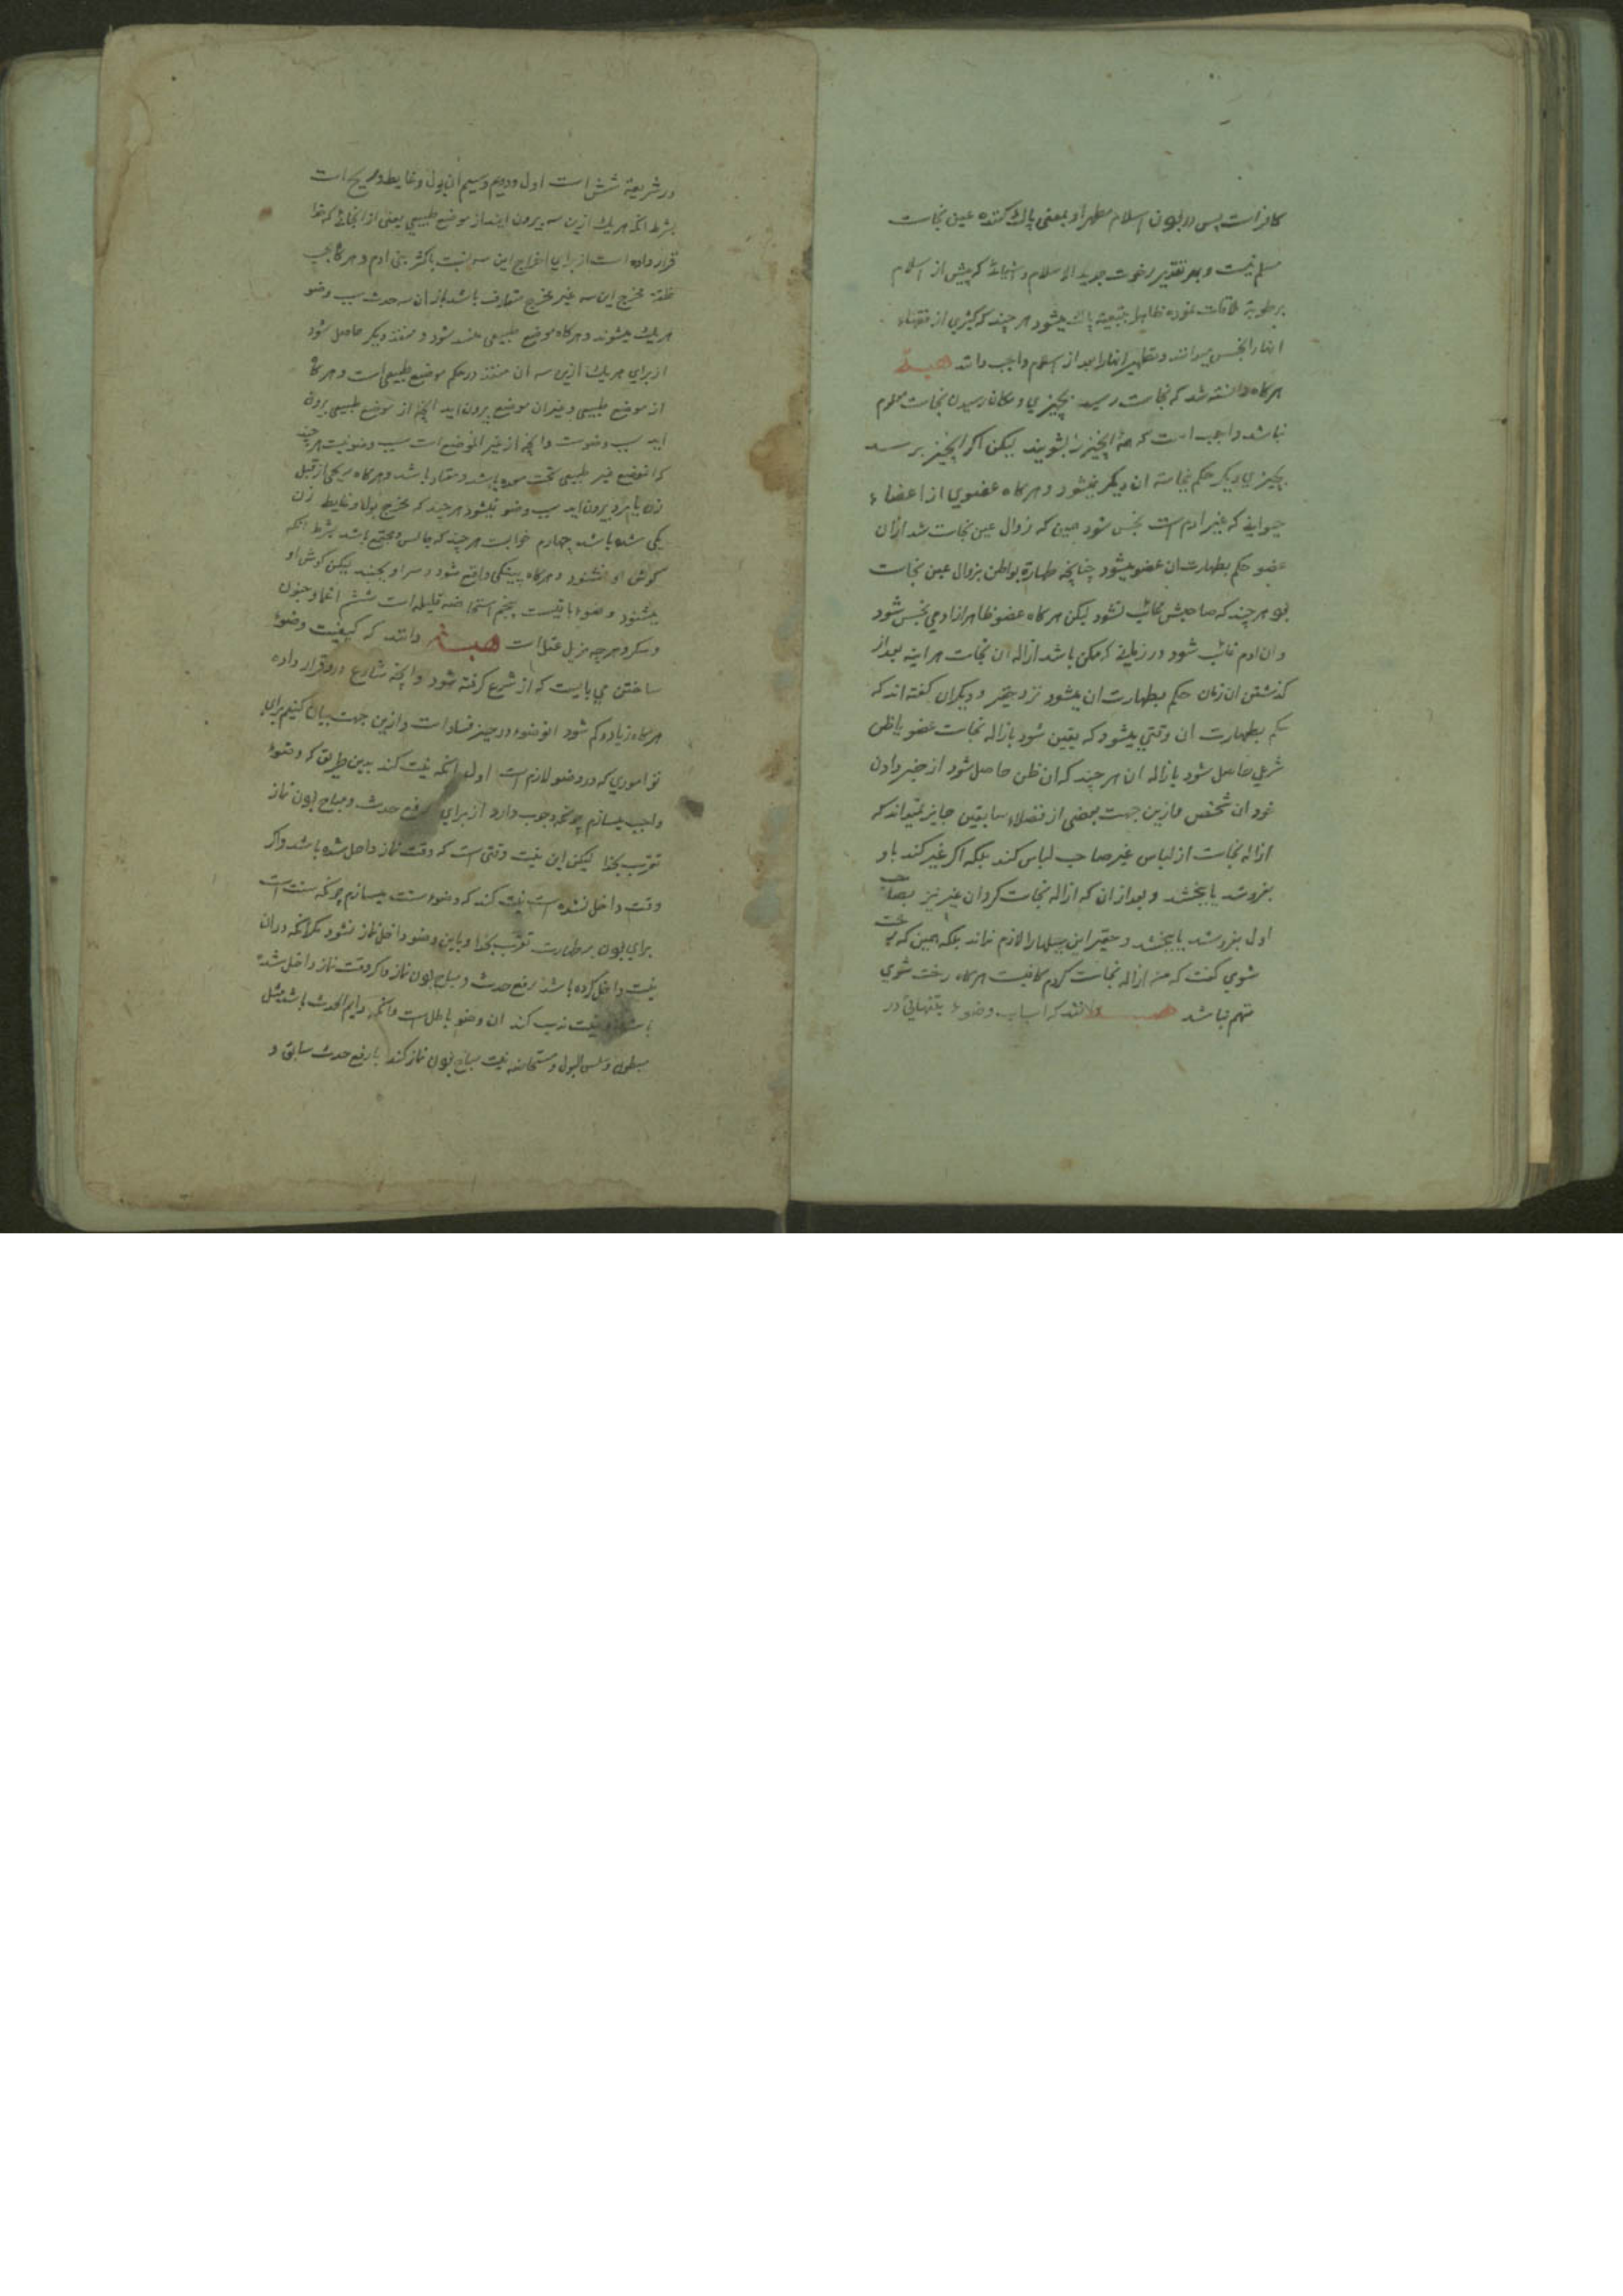 کافر است پس در بودن اسلام مطهر او بمعنی پاک کننده عین نجاست
مسلم نیست و بهر تقدیر رخوت جدید الاسلام و اشیائی که پیش از اسلام
برطوبة ملاقات نموده ظاهرا بتبعیة پاک میشود هر چند که کثیری از فقهاء
انها را نجس میدانند و تطهیر انها را بعد از اسلام واجب دانند
هرکاه دانسته شد که نجاست رسید بچیزی و مکان رسیدن نجاست معلوم
نباشد واجب است که همه انچیز را بشویند لیکن اکر انچیز برسد
بچیزی دیکر حکم نجاسة ان دیکر نمیشود و هرکاه عضوی از اعضاء
حیوانی که غیر ادم است نجس شود همین که زوال عین نجاست شد از ان
عضو حکم بطهارت ان عضو میشود چنانچه طهارة بواطن بزوال عین نجاست
بود هر چند که صاحبش غائب نشود لیکن هرکاه عضو ظاهر از ادمی نجس شود
و ان ادم غائب شود در زمانی که ممکن باشد ازاله ان نجاست هر اینه بعد از
کذشتن ان زمان حکم بطهارت ان میشود نزد حقیر و دیکران کفته اند که
حکم بطهارت ان وقتی میشود که یقین شود بازاله نجاست عضو یا ظن
شرعی حاصل شود بازاله ان هر چند که ان ظن حاصل شود از خبر دادن
خود ان شخص و ازین جهت بعضی از فضلاء سابقین جایز نمیداند که
ازاله نجاست از لباس غیر صاحب لباس کند بلکه اکر غیر کند باو
بفروشد یا بخشد و بعد از ان که ازاله نجاست کرد ان غیر نیز بصاحب
اول بفروشد یا بخشد و حقیر این حیلها را لازم نداند بلکه همین که رخت
شوی کفت که من ازاله نجاست کردم کافیست هرکاه رخت شوی
متهم نباشد دانند که اسباب وضوء بتنهائی در
در شریعة شش است اول و دویم و سیم ان بول و غایط و ریح است
بشرط انکه هر یک ازین سه بیرون ایند از موضع طبیعی یعنی از انجائی که خدا
قرار داده است از برای اخراج این سه نسبت باکثر بنی ادم و هرکاه بحسب
خلقة مخرج این سه غیر مخرج متعارف باشد باز ان سه حدث سبب وضو
هر یک میشوند و هرکاه موضع طبیعی منسد شود و منفذ دیکر حاصل شود
از برای هر یک ازین سه ان منفذ در حکم موضع طبیعی است و هرکاه
از موضع طبیعی و غیر ان موضع بیرون اید انچه از موضع طبیعی بیرون
اید سبب وضوست و انچه از غیر الموضع است سبب وضو نیست هر چند
که انموضع غیر طبیعی تحت معده باشد و معتاد باشد و هرکاه ریحی از قبل
زن یا مرد بیرون اید سبب وضو نمیشود هر چند که مخرج بول و غایط زن
یکی شده باشد چهارم خوابست هر چند که جالس و مجتمع باشد بشرط انکه
کوش او نشنود و هرکاه پینکی واقع شود و سر او بجنبد لیکن کوش او
بشنود وضوء باقیست پنجم استحاضه قلیله است ششم اغما و جنون
و سکر و هر چه مزیل عقل است دانند که کیفیت وضوء
ساختن می بایست که از شرع کرفته شود و انچه شارع درو قرار داده
هرکاه زیاد و کم شود انوضوء در حیز فساد است و ازین جهت بیان کنیم برای
تو اموری که در وضو لازم است اول انکه نیت کند بدین طریق که وضوء
واجب میسازم چونکه وجوب دارد از برای رفع حدث و مباح بودن نماز
تقرب بخدا لیکن این نیت وقتی است که وقت نماز داخل شده باشد و اکر
وقت داخل نشده است نیت کند که وضو سنت میسازم چونکه سنت است
برای بودن بر طهارت تقرب بخدا و باین وضو داخل نماز نشود مکر انکه در ان
نیت داخل کرده باشد رفع حدث و مباح بودن نماز و اکر وقت نماز داخل شده
باشد و نیت ندب کند ان وضو باطل است و انکه دایم الحدث باشد مثل
مبطون و سلس البول و مستحاضه نیت مباح بودن نماز کند یا رفع حدث سابق و